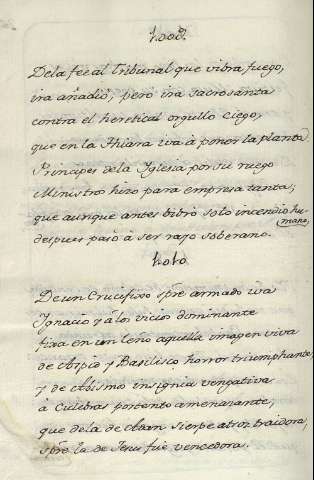 1.009.
De la fee al Tribunal que vibra fuego,
ira añadió; pero ira sacrosanta
contra el heretical orgullo ciego,
que en la Thiara iva à poner la planta
Principes de la Iglesia por su ruego
Ministros hizo para empresa tanta;
que aunque antes bibró solo incendio hu-
mano,
despues pasó à ser rayo soberano.
1.010
De un Crucifixo spre armado iva
Ignacio y a los vicios dominante
fixa en un leño aquella imagen viva
de Arpia y Basilisco horror triumphante,
y de Abismo insignia vengativa
à Culebras portento amenazante,
que de la de sierpe atroz traidora,
spre la de Jesus fué vencedora.